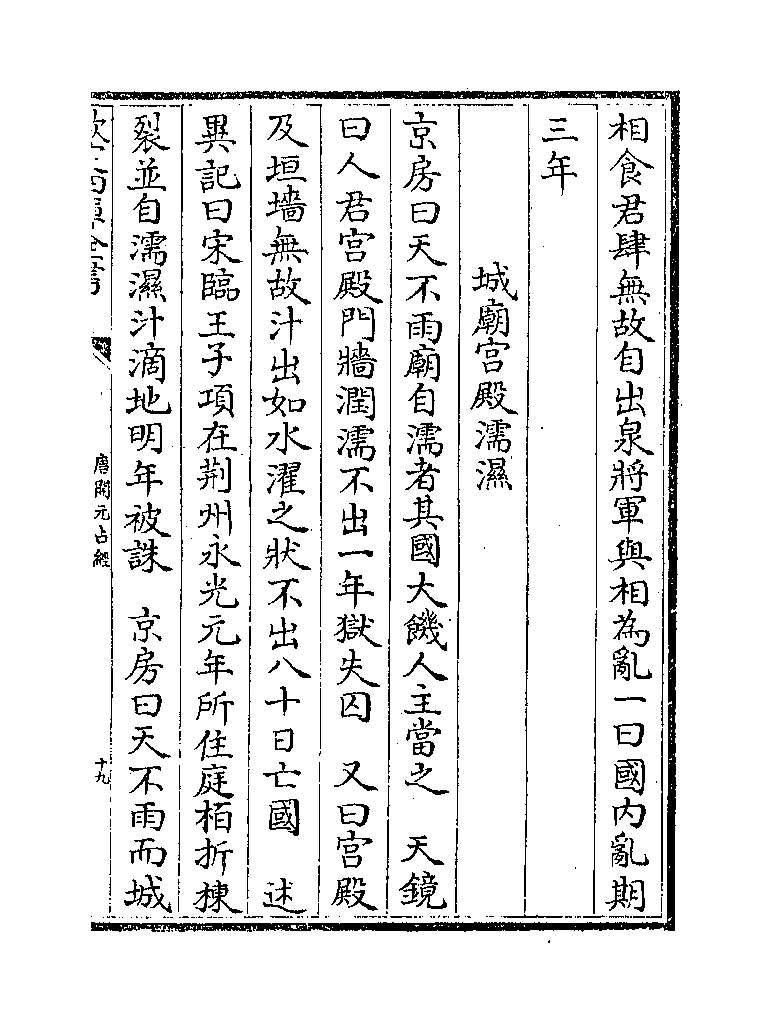 相食君肆無故自出泉將軍與相為亂一曰國内亂期
三年
城廟宫殿濡濕
京房曰天不雨廟自濡者其國大饑人主當之　天鏡
曰人君宫殿門牆潤濡不出一年獄失囚　又曰宫殿
及垣墻無故汁出如水濯之狀不出八十日亡國　述
異記曰宋臨王子項在荆州永光元年所住庭栢折棟
裂並自濡濕汁滴地明年被誅　京房曰天不雨而城
欽定四庫全書
唐開元占經
十九